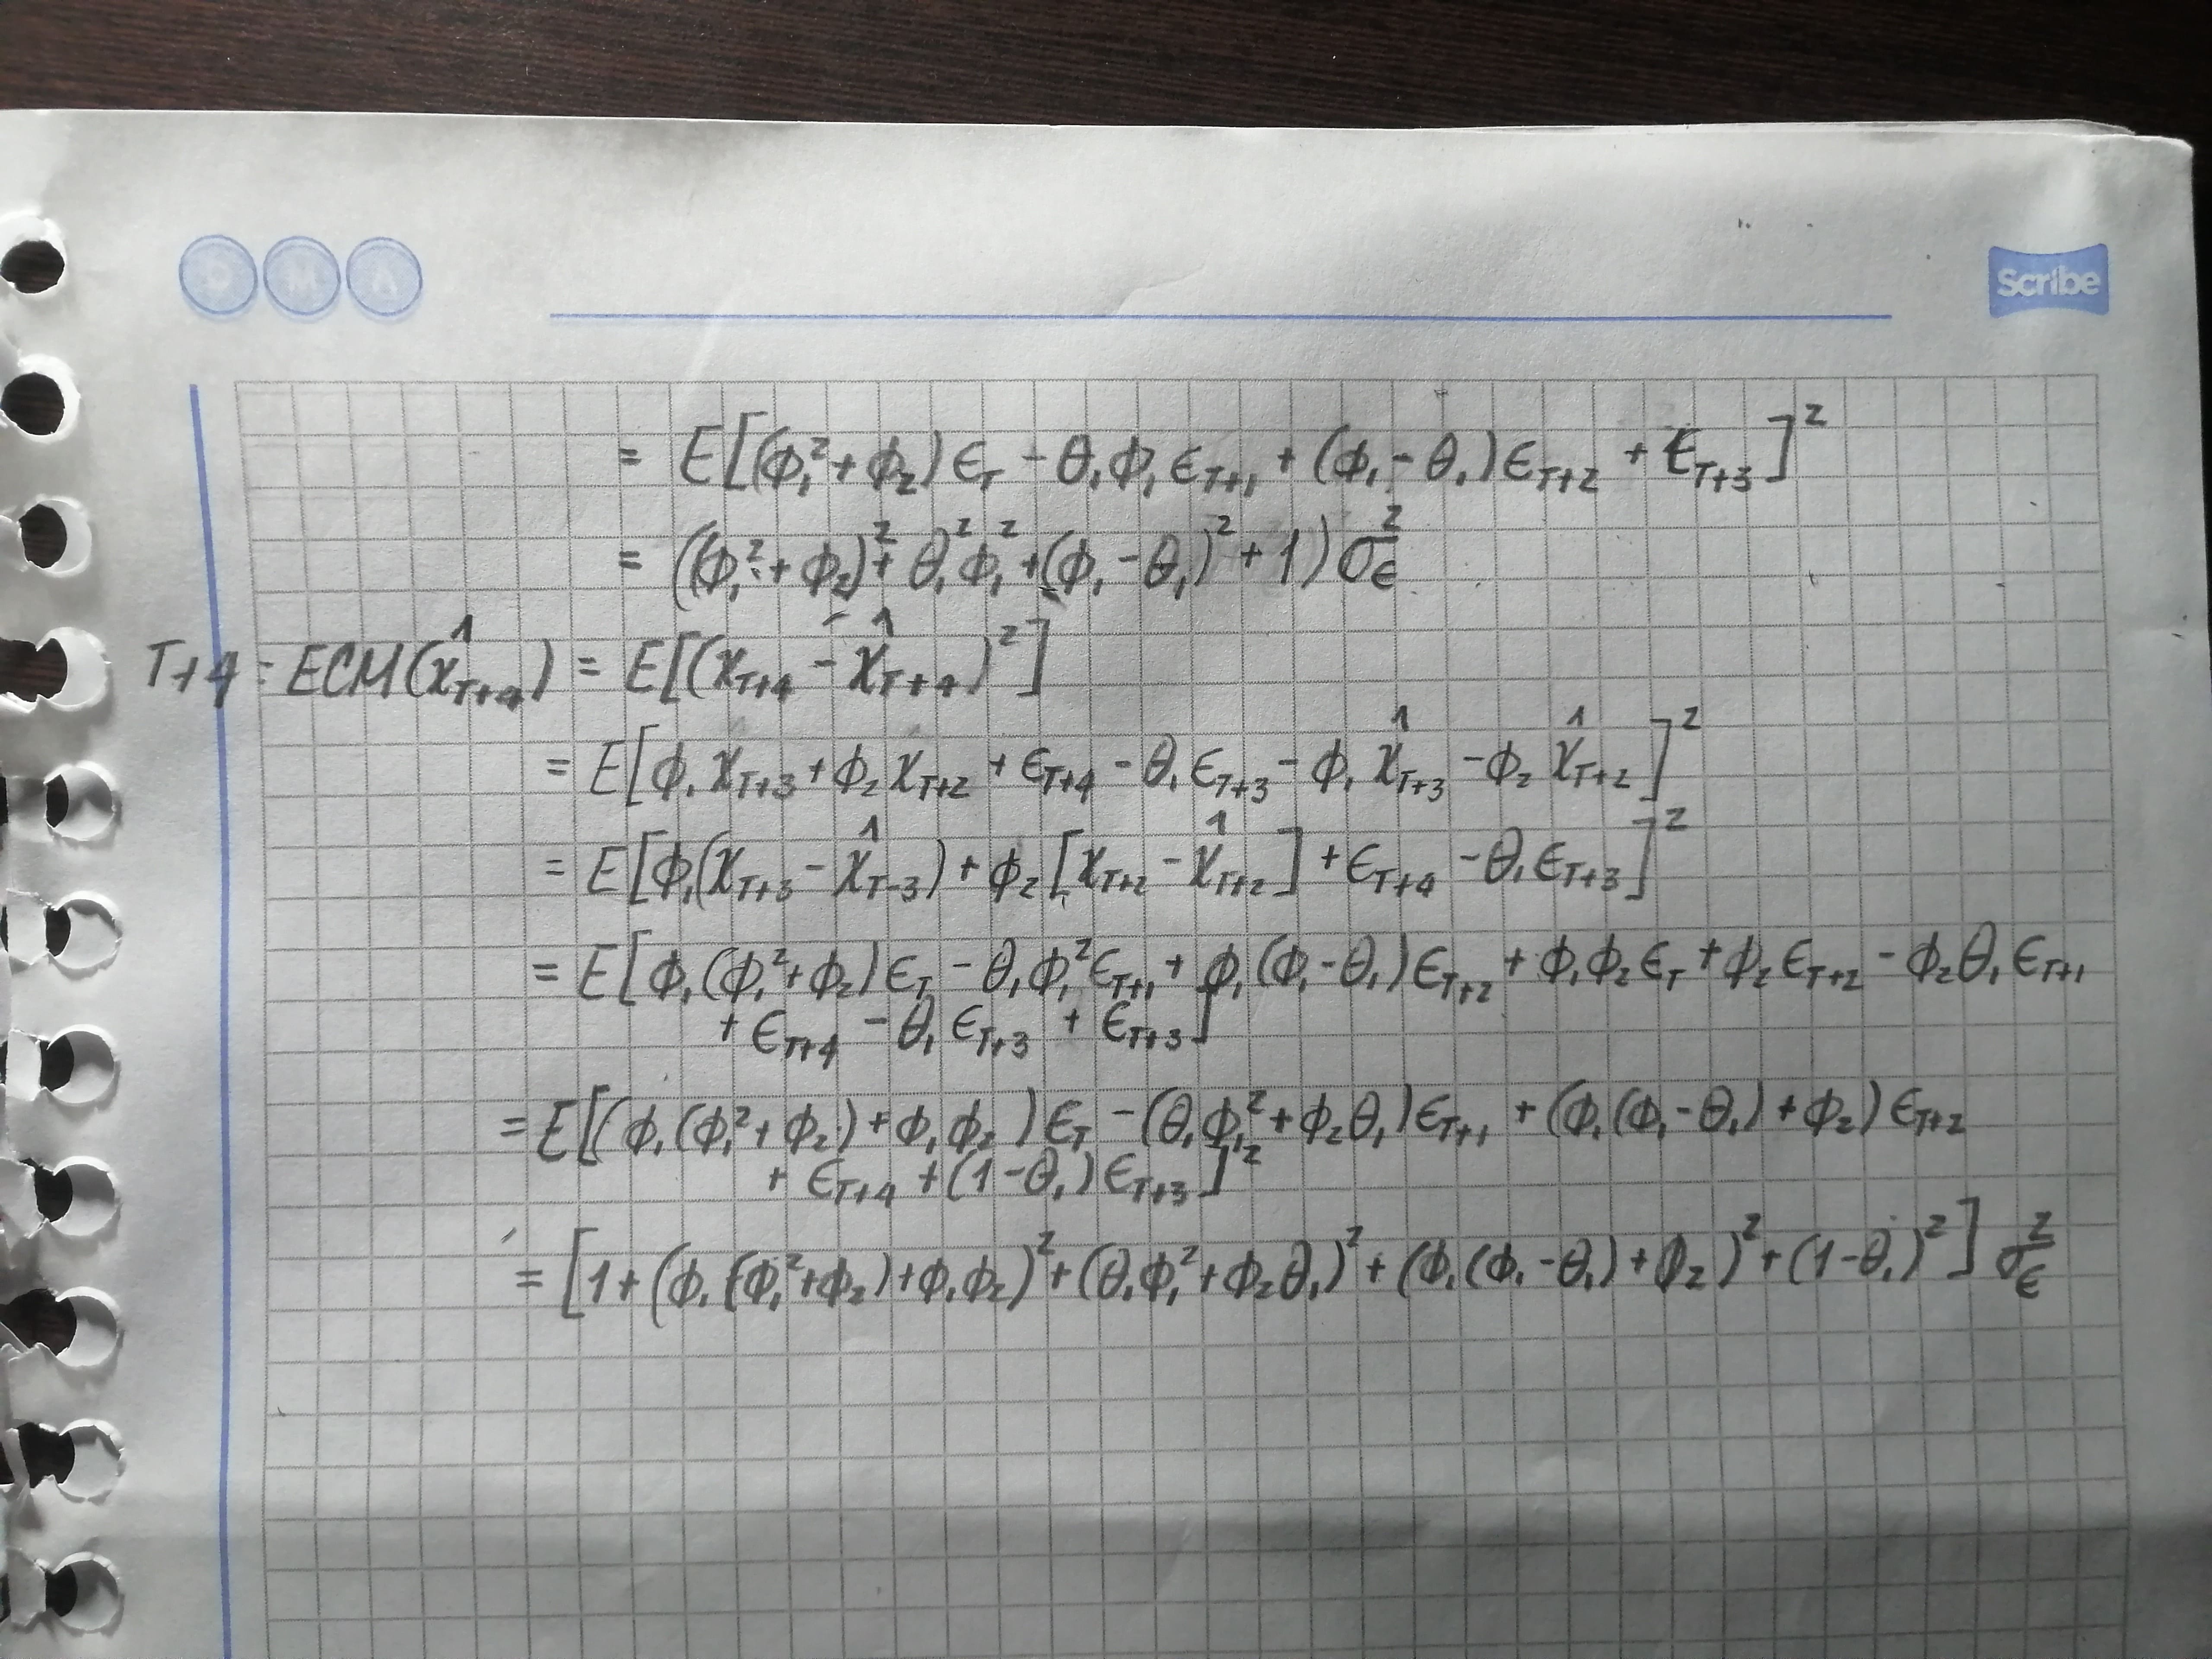 D M A
Scribe
= E[(ϕ₁²+ϕ₂)ϵ_T - θ₁ϕ₁ϵ_{T+1} + (ϕ₁-θ₁)ϵ_{T+2} + ϵ_{T+3}]²
= ((ϕ₁²+ϕ₂)²+ θ₁²ϕ₁²+(ϕ₁-θ₁)²+1)σ_ϵ²
T+4: ECM(x̂_{T+4}) = E[(x_{T+4} - x̂_{T+4})²]
= E[ϕ₁x_{T+3}+ϕ₂x_{T+2}+ϵ_{T+4}-θ₁ϵ_{T+3}-ϕ₁x̂_{T+3}-ϕ₂x̂_{T+2}]²
= E[ϕ₁(x_{T+3}-x̂_{T-3})+ϕ₂[x_{T+2}-x̂_{T+2}]+ϵ_{T+4}-θ₁ϵ_{T+3}]²
= E[ϕ₁(ϕ₁²+ϕ₂)ϵ_T-θ₁ϕ₁²ϵ_{T+1}+ϕ₁(ϕ₁-θ₁)ϵ_{T+2}+ϕ₁ϕ₂ϵ_T+ϕ₂ϵ_{T+2}-ϕ₂θ₁ϵ_{T+1}
+ϵ_{T+4}-θ₁ϵ_{T+3}+ϵ_{T+3}]
= E[(ϕ₁(ϕ₁²+ϕ₂)+ϕ₁ϕ₂)ϵ_T-(θ₁ϕ₁²+ϕ₂θ₁)ϵ_{T+1}+(ϕ₁(ϕ₁-θ₁)+ϕ₂)ϵ_{T+2}
+ϵ_{T+4}+(1-θ₁)ϵ_{T+3}]²
= [1+(ϕ₁(ϕ₁²+ϕ₂)+ϕ₁ϕ₂)²+(θ₁ϕ₁²+ϕ₂θ₁)²+(ϕ₁(ϕ₁-θ₁)+ϕ₂)²+(1-θ₁)²]σ_ϵ²